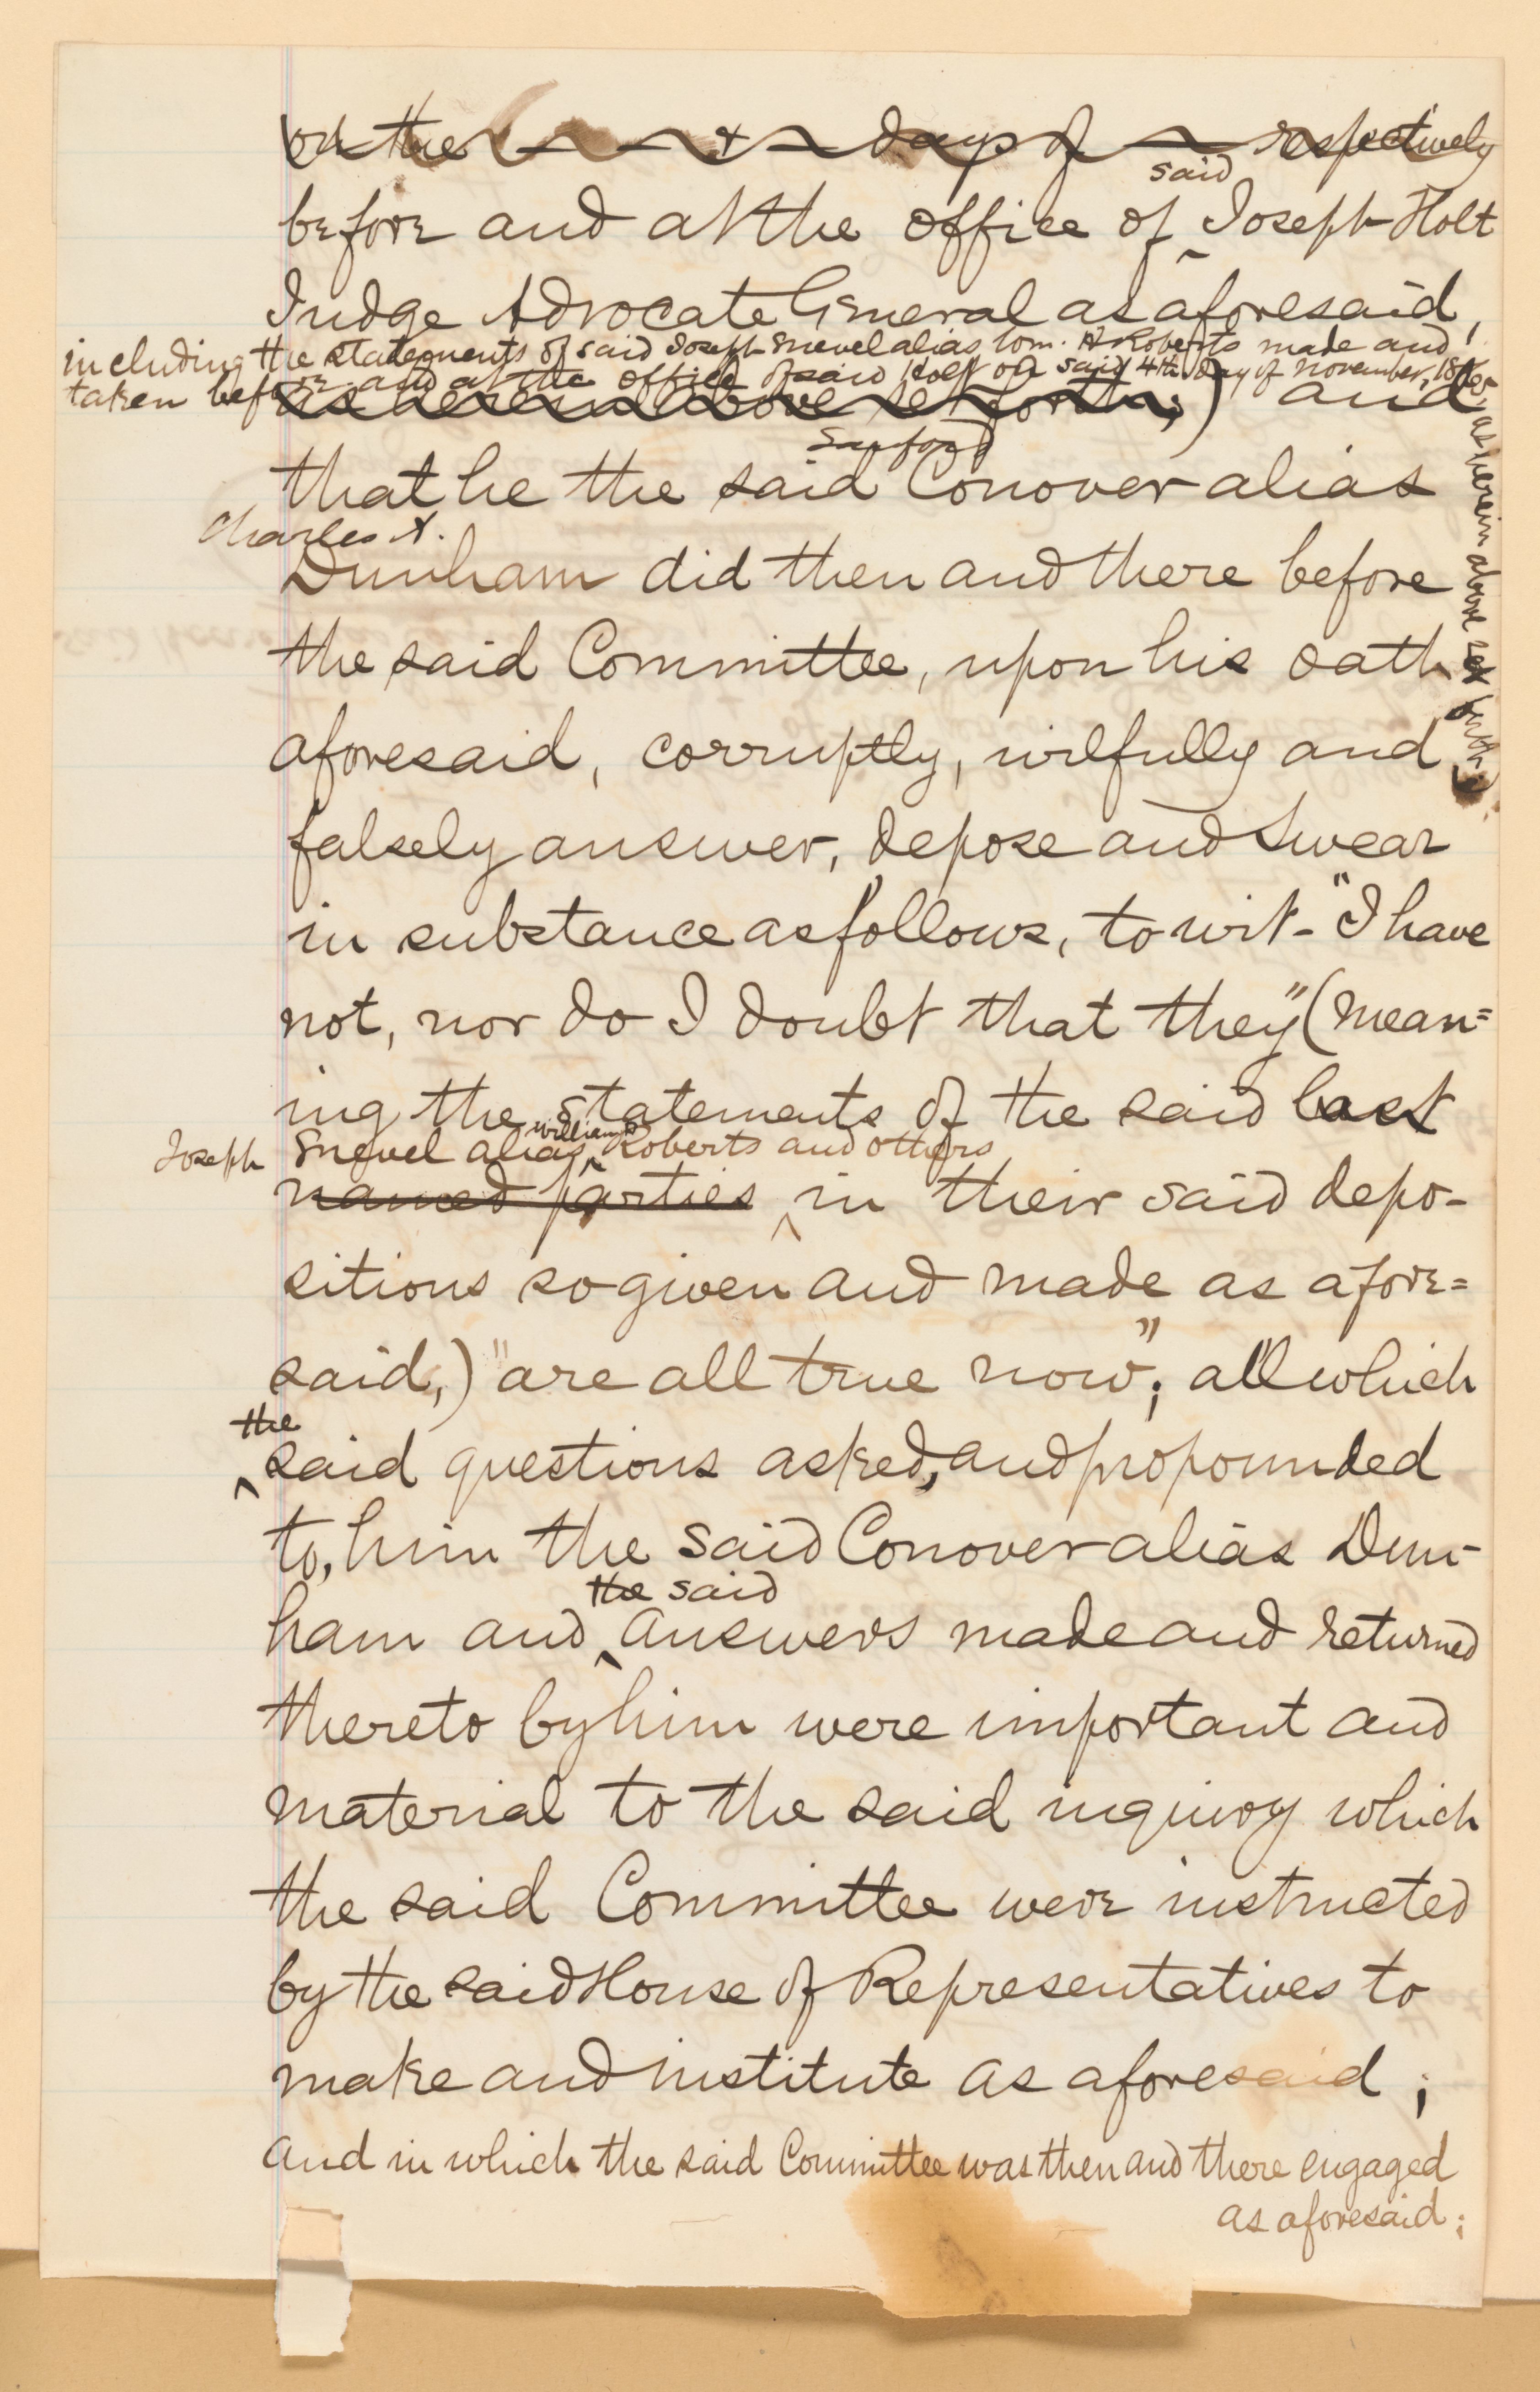 on the — — + — days of — respectively
said
before and at the office of Joseph Holt
Judge Advocate General as aforesaid,
including the statements of said Joseph Snevel alias Wm. H. Roberts made and
taken before and at the office of said Holt on said 4th day of November, 1865
as herein above set forth;) and
as herein above set forth)
Sanford
that he the said Conover alias
Charles A.
Dunham did then and there before
the said Committee, upon his oath
aforesaid, corruptly, wilfully and
falsely answer, depose and swear
in substance as follows, to wit - "I have
not, nor do I doubt that they" (mean=
ing the statements of the said last
Joseph Snevel alias William H. Roberts and others
named parties in their said depo-
sitions so given and made as afore=
said,) "are all true now"; all which
the
said questions asked, and propounded
to, him the said Conover alias Dun-
the said
ham and answers made and returned
thereto by him were important and
material to the said inquiry which
the said Committee were instructed
by the said House of Representatives to
make and institute as aforesaid;
and in which the said Committee was then and there engaged
as aforesaid;